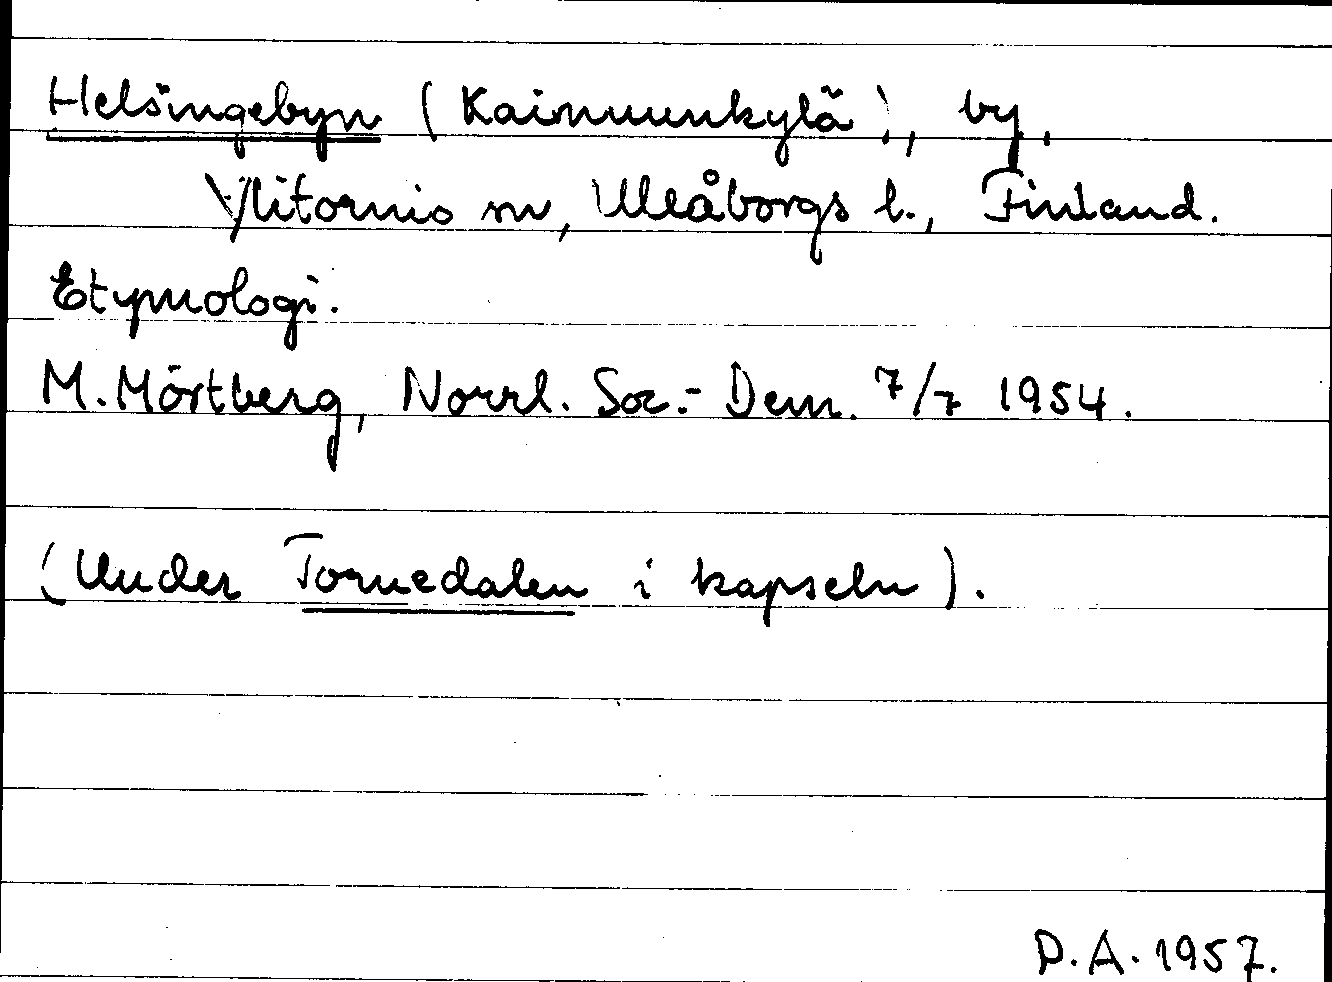 Helsingebyn (Kainuunkylä), by,
Ylitornio sn, Uleåborgs l., Finland.
Etymologi.
M. Mörtberg, Norrl. Soc.-Dem. 7/7 1954.
(Under Tornedalen i kapseln).
D.A. 1957.